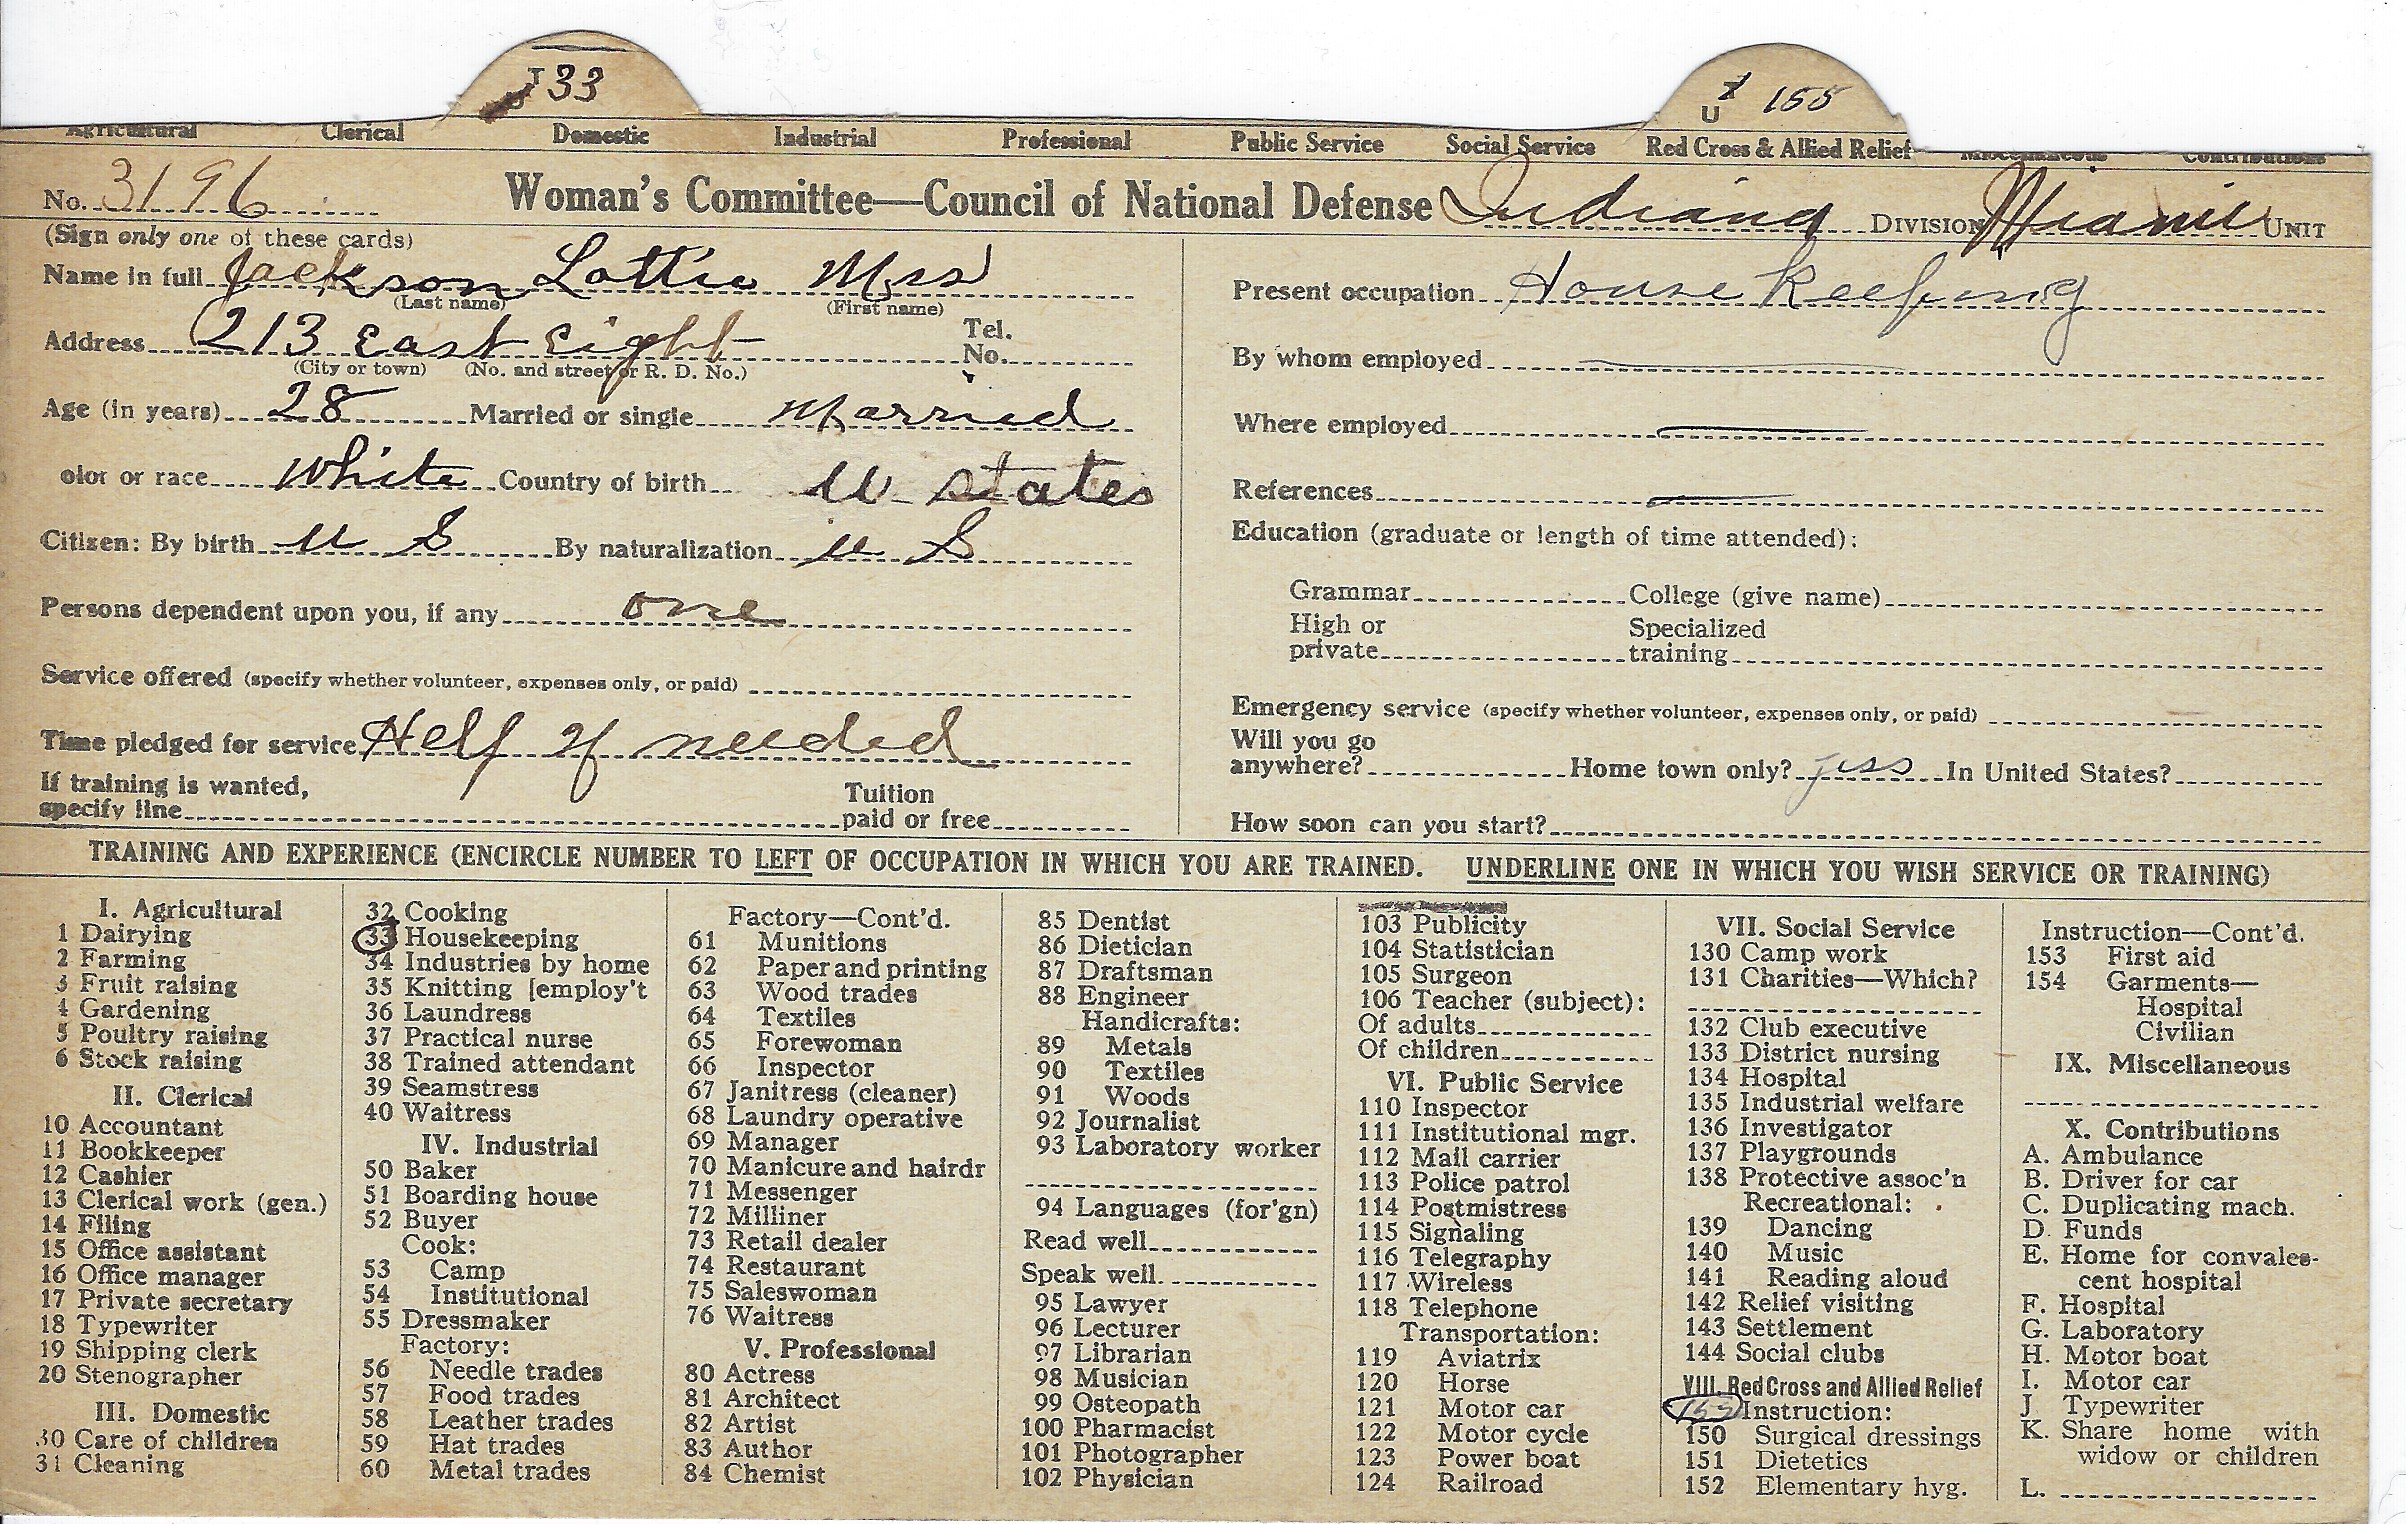 T 33
T
U 155
Agricultural Clerical Domestic Industrial Professional Public Service Social Service Red Cross & Allied Relief Miscellaneous Contributions
No. 3196 Woman's Committee—Council of National Defense Indiana DIVISION Miami UNIT
(Sign only one of these cards)
Name in full Jackson Lottie Mrs
(Last name) (First name)
Address 213 East Eight Tel. No.
(City or town) (No. and street or R. D. No.)
Age (in years) 28 Married or single Married
olor or race White Country of birth U States
Citizen: By birth U S By naturalization U S
Persons dependent upon you, if any one
Service offered (specify whether volunteer, expenses only, or paid)
Time pledged for service Help If needed
If training is wanted,
specify line Tuition paid or free
Present occupation House Keeping
By whom employed
Where employed
References
Education (graduate or length of time attended):
Grammar College (give name)
High or private Specialized training
Emergency service (specify whether volunteer, expenses only, or paid)
Will you go
anywhere? Home town only? yess In United States?
How soon can you start?
TRAINING AND EXPERIENCE (ENCIRCLE NUMBER TO LEFT OF OCCUPATION IN WHICH YOU ARE TRAINED. UNDERLINE ONE IN WHICH YOU WISH SERVICE OR TRAINING)
I. Agricultural
1 Dairying
2 Farming
3 Fruit raising
4 Gardening
5 Poultry raising
6 Stock raising
II. Clerical
10 Accountant
11 Bookkeeper
12 Cashier
13 Clerical work (gen.)
14 Filing
15 Office assistant
16 Office manager
17 Private secretary
18 Typewriter
19 Shipping clerk
20 Stenographer
III. Domestic
30 Care of children
31 Cleaning
32 Cooking
33 Housekeeping
34 Industries by home
35 Knitting [employ't
36 Laundress
37 Practical nurse
38 Trained attendant
39 Seamstress
40 Waitress
IV. Industrial
50 Baker
51 Boarding house
52 Buyer
Cook:
53 Camp
54 Institutional
55 Dressmaker
Factory:
56 Needle trades
57 Food trades
58 Leather trades
59 Hat trades
60 Metal trades
Factory—Cont'd.
61 Munitions
62 Paper and printing
63 Wood trades
64 Textiles
65 Forewoman
66 Inspector
67 Janitress (cleaner)
68 Laundry operative
69 Manager
70 Manicure and hairdr
71 Messenger
72 Milliner
73 Retail dealer
74 Restaurant
75 Saleswoman
76 Waitress
V. Professional
80 Actress
81 Architect
82 Artist
83 Author
84 Chemist
85 Dentist
86 Dietician
87 Draftsman
88 Engineer
Handicrafts:
89 Metals
90 Textiles
91 Woods
92 Journalist
93 Laboratory worker
94 Languages (for'gn)
Read well
Speak well
95 Lawyer
96 Lecturer
97 Librarian
98 Musician
99 Osteopath
100 Pharmacist
101 Photographer
102 Physician
103 Publicity
104 Statistician
105 Surgeon
106 Teacher (subject):
Of adults
Of children
VI. Public Service
110 Inspector
111 Institutional mgr.
112 Mail carrier
113 Police patrol
114 Postmistress
115 Signaling
116 Telegraphy
117 Wireless
118 Telephone
Transportation:
119 Aviatrix
120 Horse
121 Motor car
122 Motor cycle
123 Power boat
124 Railroad
VII. Social Service
130 Camp work
131 Charities—Which?
132 Club executive
133 District nursing
134 Hospital
135 Industrial welfare
136 Investigator
137 Playgrounds
138 Protective assoc'n
Recreational:
139 Dancing
140 Music
141 Reading aloud
142 Relief visiting
143 Settlement
144 Social clubs
VIII. Red Cross and Allied Relief
155 Instruction:
150 Surgical dressings
151 Dietetics
152 Elementary hyg.
Instruction—Cont'd.
153 First aid
154 Garments—
Hospital
Civilian
IX. Miscellaneous
X. Contributions
A. Ambulance
B. Driver for car
C. Duplicating mach.
D. Funds
E. Home for convales-
cent hospital
F. Hospital
G. Laboratory
H. Motor boat
I. Motor car
J. Typewriter
K. Share home with
widow or children
L.